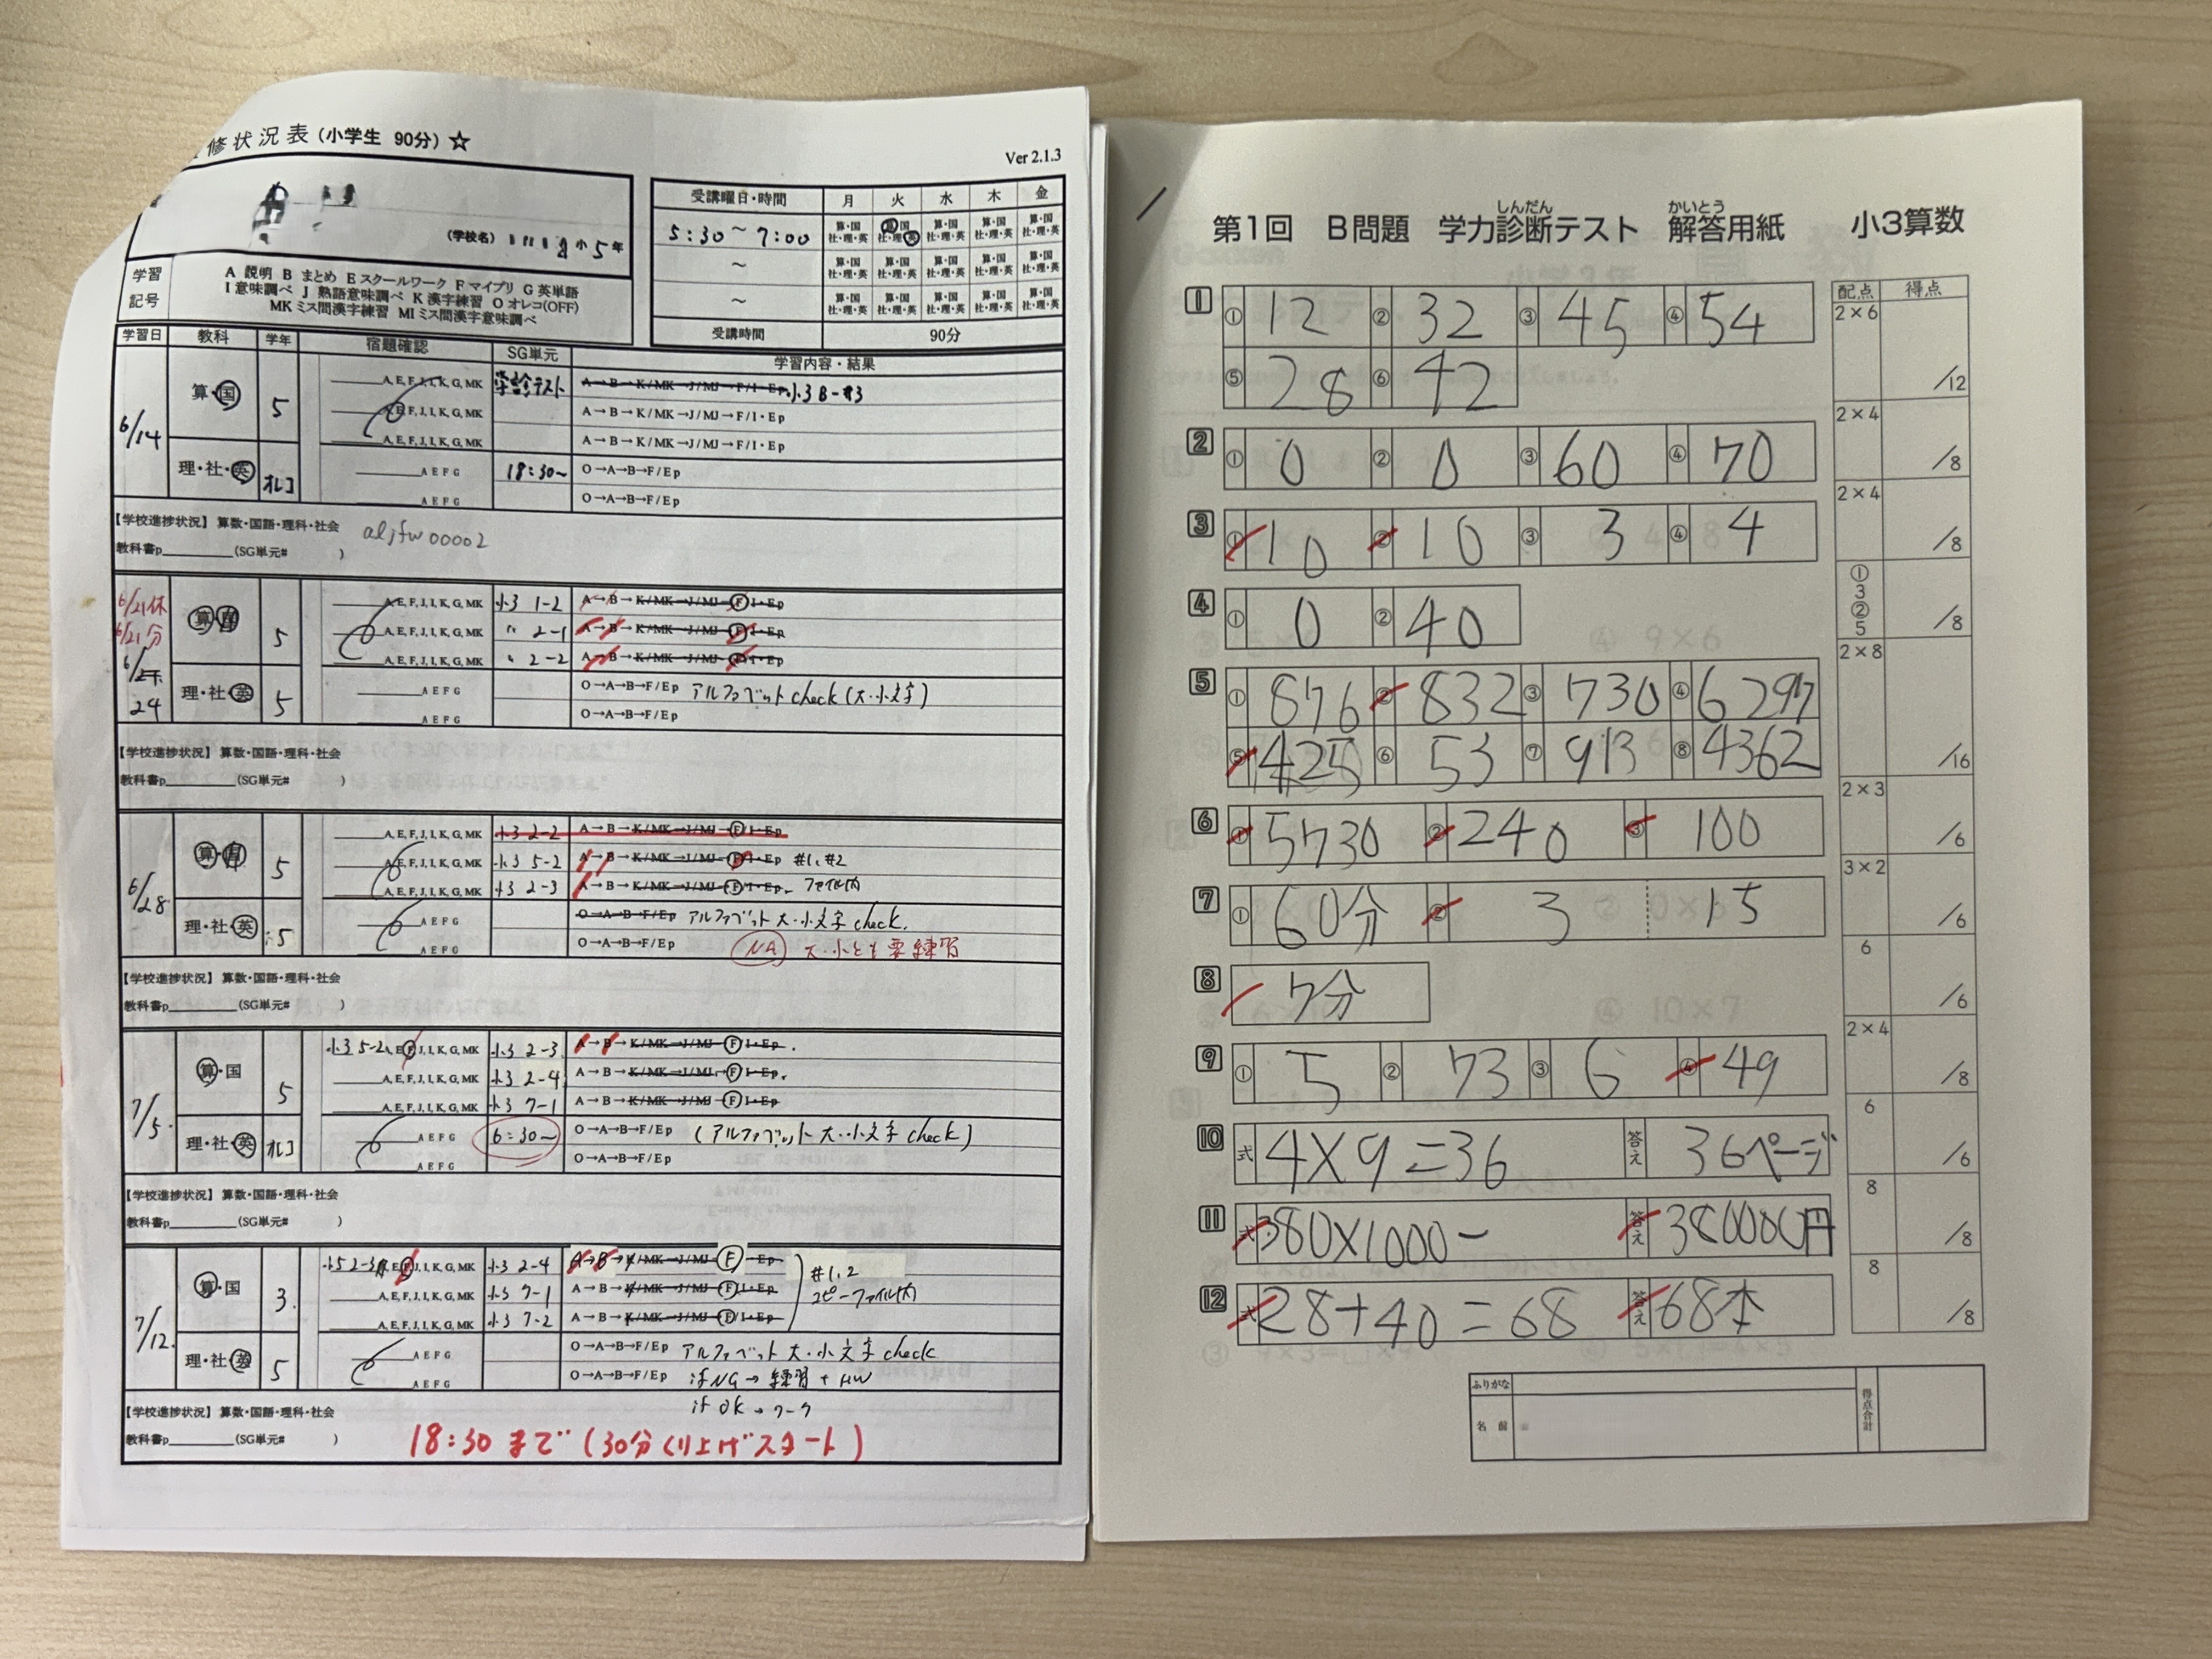 修状況表(小学生 90分)☆
Ver 2.1.3
(学校名) 小5年
受講曜日・時間 月 火 水 木 金
5:30〜7:00 算・国 社・理・英 算・国 社・理・英 算・国 社・理・英 算・国 社・理・英 算・国 社・理・英
〜 算・国 社・理・英 算・国 社・理・英 算・国 社・理・英 算・国 社・理・英 算・国 社・理・英
〜 算・国 社・理・英 算・国 社・理・英 算・国 社・理・英 算・国 社・理・英 算・国 社・理・英
受講時間 90分
学習記号
A 説明 B まとめ E スクールワーク F マイプリ G 英単語
I 意味調べ J 熟語意味調べ K 漢字練習 O オレコ(OFF)
MK ミス間漢字練習 MI ミス間漢字意味調べ
学習日 教科 学年 宿題確認 SG単元 学習内容・結果
6/14 算・国 5 A, E, F, J, I, K, G, MK 学診テスト A→B→K/MK→J/MJ→F/I・Ep 小3B-#3
A, E, F, J, I, K, G, MK A→B→K/MK→J/MJ→F/I・Ep
A, E, F, J, I, K, G, MK A→B→K/MK→J/MJ→F/I・Ep
理・社・英 オレコ A E F G 18:30〜 O→A→B→F/Ep
A E F G O→A→B→F/Ep
【学校進捗状況】算数・国語・理科・社会 aljfw00002
教科書p________(SG単元# )
6/21休
6/21分
6/24 算・国 5 A, E, F, J, I, K, G, MK 小3 1-2 A→B→K/MK→J/MJ→F I・Ep
A, E, F, J, I, K, G, MK 〃 2-1 A→B→K/MK→J/MJ→F I・Ep
A, E, F, J, I, K, G, MK 〃 2-2 A→B→K/MK→J/MJ→F I・Ep
理・社・英 5 A E F G O→A→B→F/Ep アルファベットcheck(大・小文字)
A E F G O→A→B→F/Ep
【学校進捗状況】算数・国語・理科・社会
教科書p________(SG単元# )
6/28 算・国 5 A, E, F, J, I, K, G, MK 小3 2-2 A→B→K/MK→J/MJ→F/I・Ep
A, E, F, J, I, K, G, MK 小3 5-2 A→B→K/MK→J/MJ→F/I・Ep #1, #2
A, E, F, J, I, K, G, MK 小3 2-3 A→B→K/MK→J/MJ→F/I・Ep ファイル内
理・社・英 5 A E F G O→A→B→F/Ep アルファベット大・小文字check.
A E F G O→A→B→F/Ep NG 大・小とも要練習
【学校進捗状況】算数・国語・理科・社会
教科書p________(SG単元# )
7/5 算・国 5 小3 5-2 A, E, F, J, I, K, G, MK 小3 2-3 A→B→K/MK→J/MJ→F I・Ep
A, E, F, J, I, K, G, MK 小3 2-4 A→B→K/MK→J/MJ→F I・Ep
A, E, F, J, I, K, G, MK 小3 7-1 A→B→K/MK→J/MJ→F I・Ep
理・社・英 オレコ A E F G 6:30〜 O→A→B→F/Ep (アルファベット大・小文字check)
A E F G O→A→B→F/Ep
【学校進捗状況】算数・国語・理科・社会
教科書p________(SG単元# )
7/12 算・国 3 小5 2-3 A, E, F, J, I, K, G, MK 小3 2-4 A→B→K/MK→J/MJ→F・Ep
A, E, F, J, I, K, G, MK 小3 7-1 A→B→K/MK→J/MJ→F/I・Ep #1,2 コピーファイル内
A, E, F, J, I, K, G, MK 小3 7-2 A→B→K/MK→J/MJ→F/I・Ep
理・社・英 5 A E F G O→A→B→F/Ep アルファベット大・小文字check
A E F G O→A→B→F/Ep if NG→練習+HW
if OK→ワーク
【学校進捗状況】算数・国語・理科・社会
教科書p________(SG単元# )
18:30まで(30分くり上げスタート)
しんだん かいとう
第1回 B問題 学力診断テスト 解答用紙 小3算数
配点 得点
1 ① 12 ② 32 ③ 45 ④ 54 2×6
⑤ 28 ⑥ 42 /12
2 ① 0 ② 0 ③ 60 ④ 70 2×4 /8
3 ① 10 ② 10 ③ 3 ④ 4 2×4 /8
4 ① 0 ② 40 ① 3 ② 5 /8
5 ① 876 ② 832 ③ 730 ④ 6297 2×8
⑤ 425 ⑥ 53 ⑦ 913 ⑧ 4362 /16
6 ① 5730 ② 240 ③ 100 2×3 /6
7 ① 60分 ② 3 15 3×2 /6
8 7分 6 /6
9 ① 5 ② 73 ③ 6 ④ 49 2×4 /8
10 式 4×9=36 答え 36ページ 6 /6
11 式 380×1000- 答え 380000円 8 /8
12 式 28+40=68 答え 68本 8 /8
ふりがな
名前
得点合計